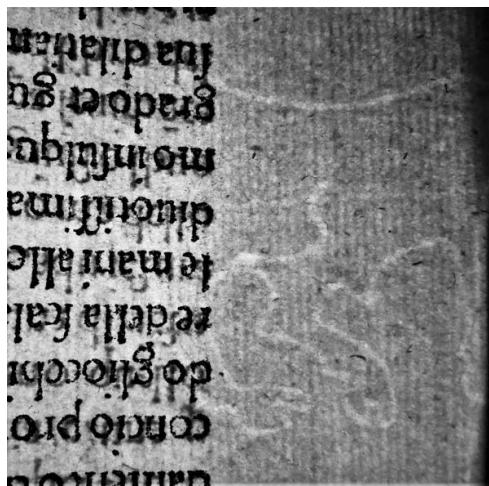 concio pro
do gliocchi
re della scala
te mani alle
diuotissima
mo insulqua
grado et gu
sua dilatan